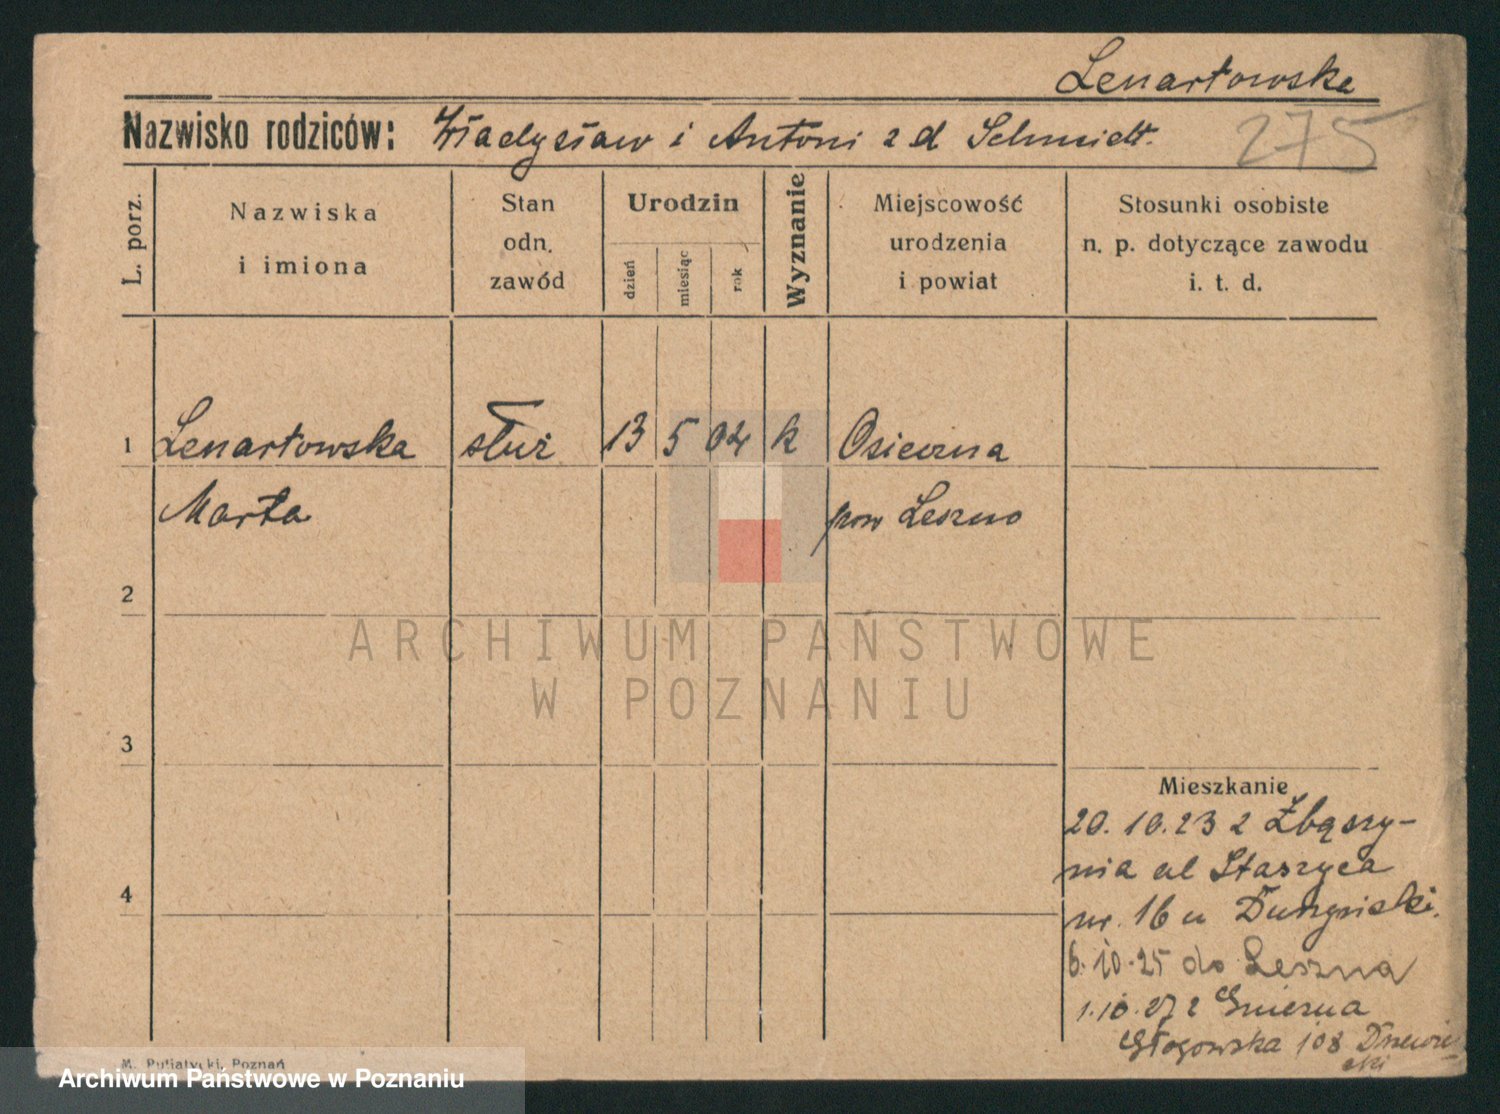 Lenartowska
Nazwisko rodziców: Władysław i Antoni z d Schmidt.
275
L. porz.
Nazwiska
i imiona
Stan
odn.
zawód
Urodzin
dzień
miesiąc
rok
Wyznanie
Miejscowość
urodzenia
i powiat
Stosunki osobiste
n. p. dotyczące zawodu
i. t. d.
1 Lenartowska służ 13 5 04 k Osieczna
Marta pow Leszno
2
ARCHIWUM PAŃSTWOWE
W POZNANIU
3
Mieszkanie
20. 10. 23 z Zbąszy-
nia ul Staszyca
4
nr. 16 u
6. 10. 25 do Leszna
1. 10. 27 z Gniezna
Głogowska 108
M. Putiatycki, Poznań
Archiwum Państwowe w Poznaniu